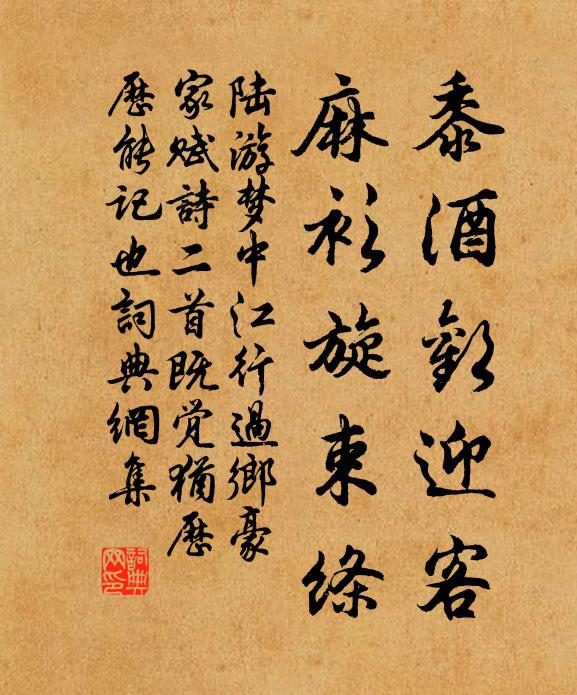 黍酒歡迎客
麻衫旋束絛
陆游梦中江行過鄉豪
家赋詩二首既觉猶歷
歷能記也詞典網集
詞典网印